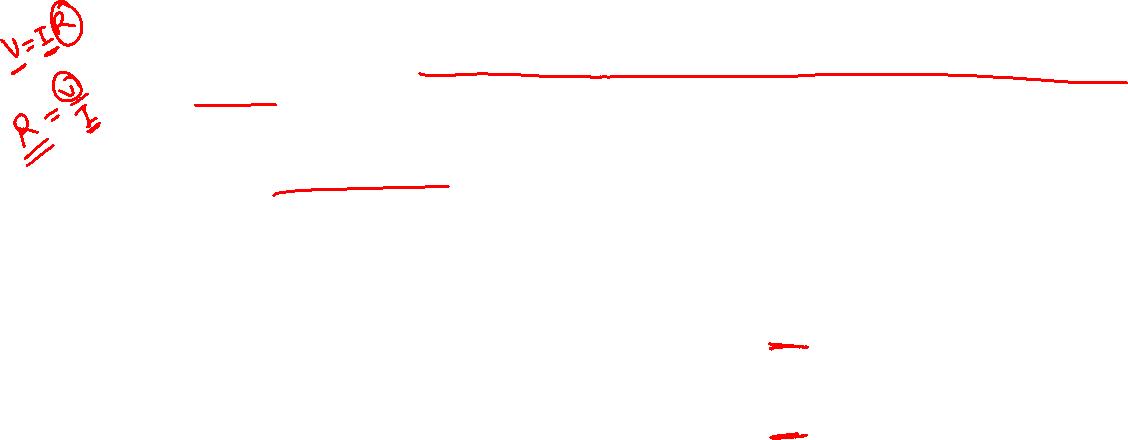 V = IR
R = V/I